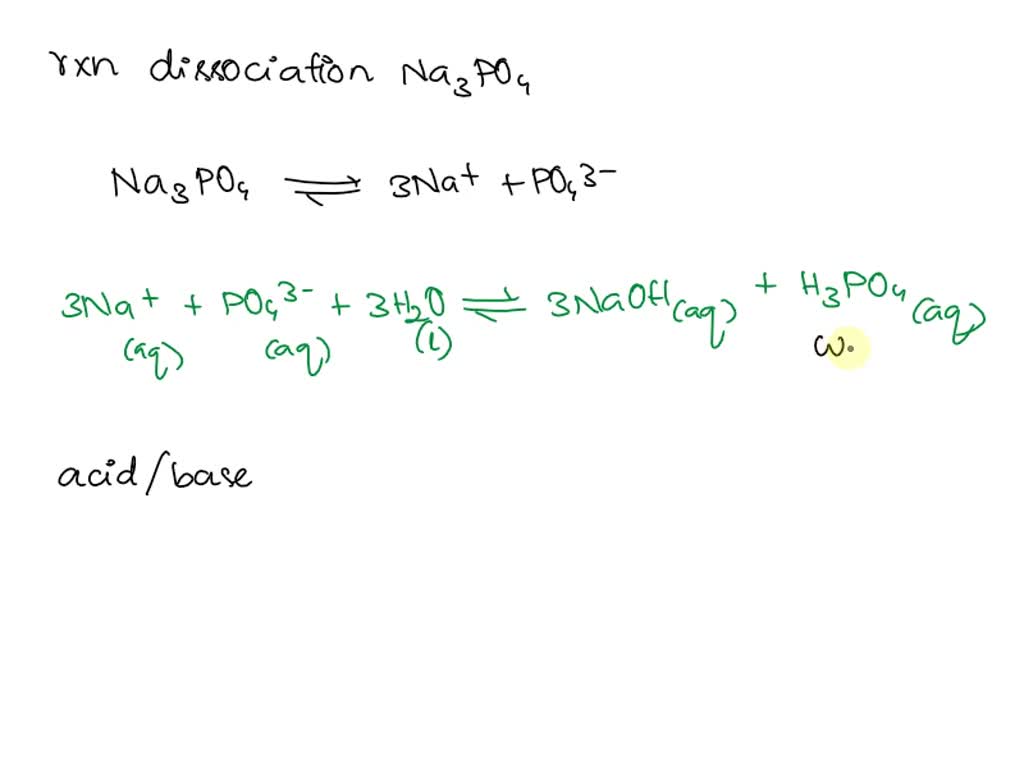 rxn dissociation Na₃PO₄
Na₃PO₄ ⇌ 3Na⁺ + PO₄³⁻
3Na⁺ + PO₄³⁻ + 3H₂O ⇌ 3NaOH(aq) + H₃PO₄(aq)
(aq) (aq) (l) w.
acid/base